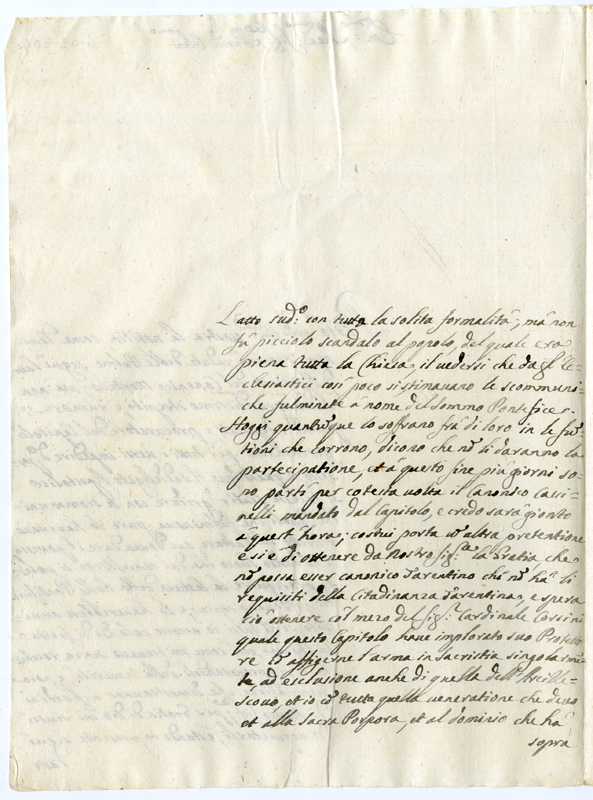 L'atto sud.º con tutta la solita formalità, mà non
fù picciolo scandalo al popolo, del quale era
piena tutta la Chiesa, il vedersi che dagl'Ec=
clesiastici così poco si stimavano le scommuni=
che fulminate a nome del sommo Pontefice.
Hoggi quantũque co sofrano frà di loro in le fũt
tioni che corrono, dicono che nõ si daranno la
partecipatione, et a questo fine più giorni so=
no partì per cotesta volta il Canonico Cassi=
nelli mandato dal Capitolo, e credo sarà gionto
a quest'hora; costui porta ũ altra pretentione
e si è di ottenere da Nostro Sig.re la Gratia che
nõ possa esser canonico Tarentino chi nõ hà li
requisiti della Citadinanza Tarentina, e spera
ciò ottenere col mezo del Sig.r Cardinale Corsini
quale questo Capitolo have implorato suo Protetto
re cõ affigerne l'arma in sacristia singolarmẽ=
te, ad esclusione anche di quella dell'Arcive=
scovo, et io cõ tutta quella veneratione che devo
et alla Sacra Porpora, et al dominio che hà
sopra